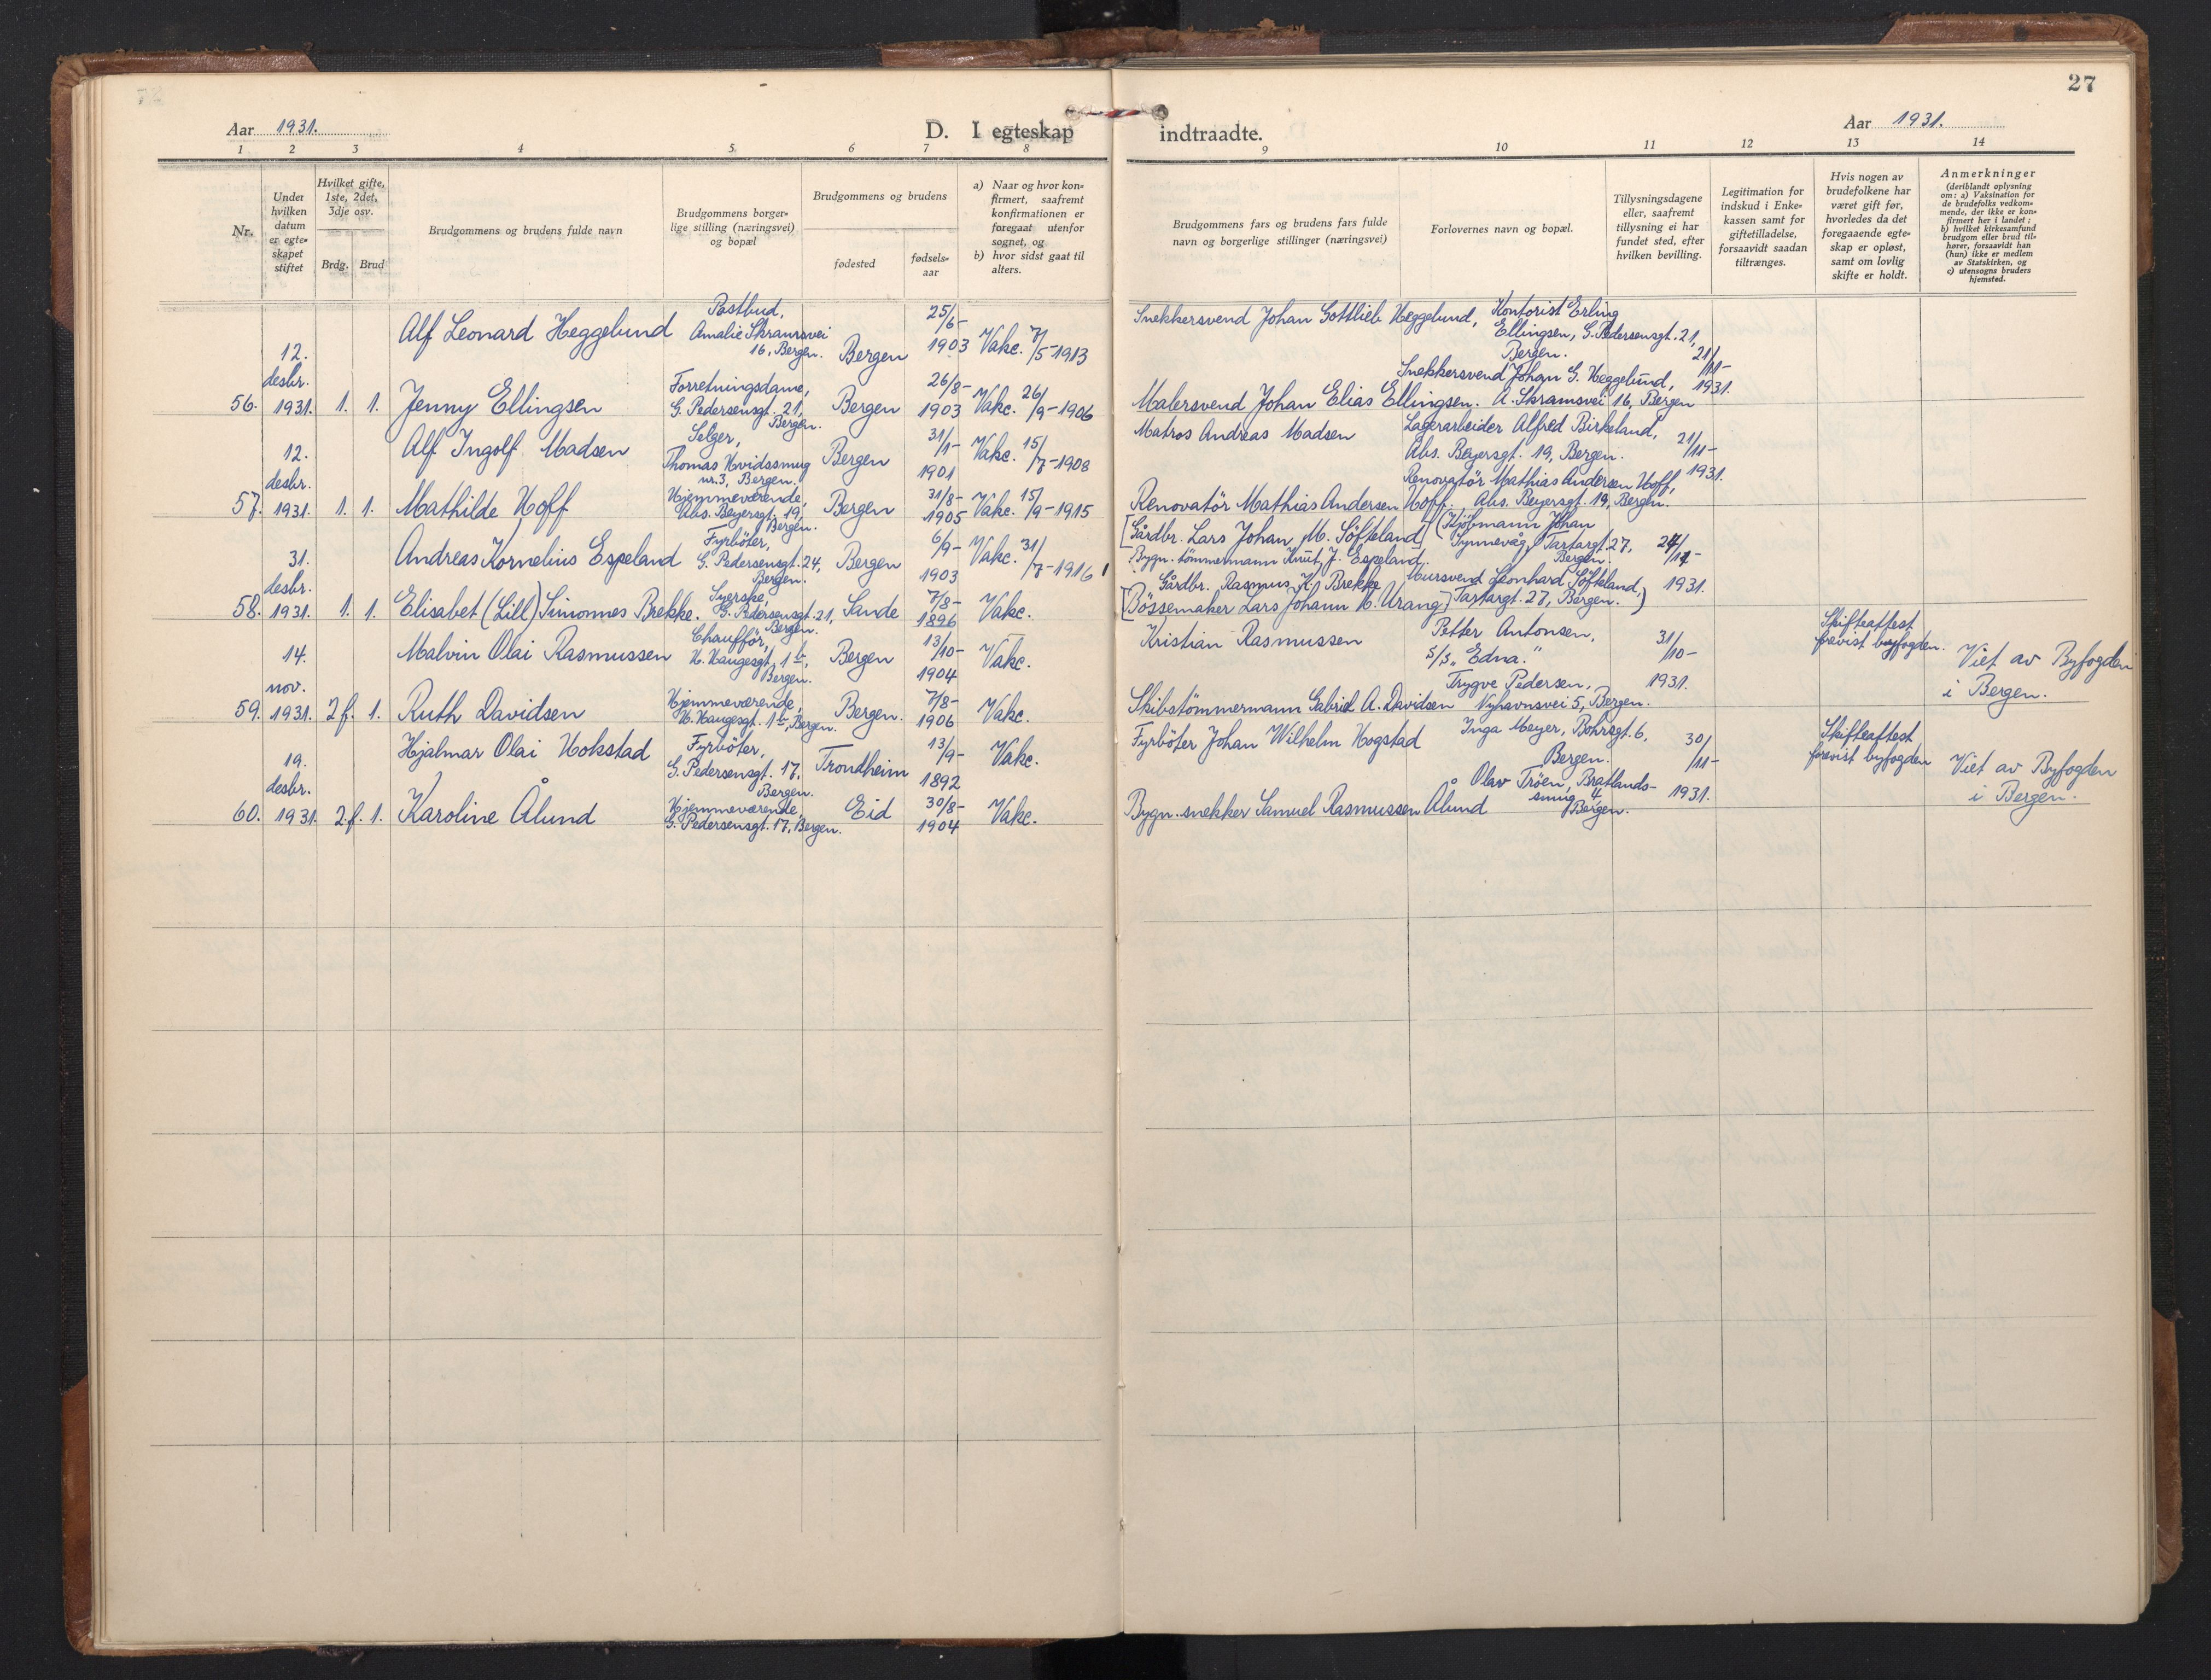 27
Aar 1931.
D. I egteskap indtraadte.
Aar 1931.
1 2 3 4 5 6 7 8 9 10 11 12 13 14
Nr.
Under hvilken datum er egte-skapet stiftet
Hvilket gifte, 1ste, 2det, 3dje osv.
Brdg. Brud
Brudgommens og brudens fulde navn
Brudgommens borger-lige stilling (næringsvei) og bopæl
Brudgommens og brudens
fødested
fødsels-aar
a) Naar og hvor kon-firmert, saafremt konfirmationen er foregaat utenfor sognet, og
b) hvor sidst gaat til alters.
Brudgommens fars og brudens fars fulde navn og borgerlige stillinger (næringsvei)
Forlovernes navn og bopæl.
Tillysningsdagene eller, saafremt tillysning ei har fundet sted, efter hvilken bevilling.
Legitimation for indskud i Enke-kassen samt for giftetilladelse, forsaavidt saadan tiltrænges.
Hvis nogen av brudefolkene har været gift før, hvorledes da det foregaaende egte-skap er opløst, samt om lovlig skifte er holdt.
Anmerkninger
(deriblandt oplysning om: a) Vaksination for de brudefolks vedkom-mende, der ikke er kon-firmert her i landet; b) hvilket kirkesamfund brudgom eller brud til-hører, forsaavidt han (hun) ikke er medlem av Statskirken, og c) utensogns bruders hjemsted.
56. 12. desbr. 1931. 1. 1.
Alf Leonard Heggelund
Postbud, Amalie Skramsvei 16, Bergen.
Bergen
25/6-1903
Vakc. 7/5-1913
Snekkersvend Johan Gottlieb Heggelund,
Kontorist Erling Ellingsen, G. Pedersensgt. 21, Bergen.
21/11-1931.
Jenny Ellingsen
Forretningsdame, G. Pedersensgt. 21, Bergen.
Bergen
26/8-1903
Vakc. 26/9-1906
Malersvend Johan Elias Ellingsen.
Snekkersvend Johan G. Heggelund, A. Skramsvei 16, Bergen
57. 12. desbr. 1931. 1. 1.
Alf Ingolf Madsen
Selger, Thomas Hvidssmug nr. 3, Bergen.
Bergen
31/1-1901
Vakc. 15/7-1908
Matros Andreas Madsen
Lagerarbeider Alfred Birkeland, Abs. Beyersgt. 19, Bergen.
21/11-1931.
Mathilde Hoff
Hjemmeværende, Abs. Beyersgt. 19, Bergen.
Bergen
31/8-1905
Vakc. 15/9-1915
Renovatör Mathias Andersen Hoff.
Renovatör Mathias Andersen Hoff, Abs. Beyersgt. 19, Bergen.
58. 31. desbr. 1931. 1. 1.
Andreas Kornelius Espeland
Fyrböter, G. Pedersensgt. 24, Bergen.
Bergen
6/9-1903
Vakc. 31/7-1916
[Gårdbr. Lars Johan M. Söfteland]
Bygn. tömmermann Knut J. Espeland.
(Kjöbmann Johan Synnevåg, Tartargt. 27, Bergen.
1931.
Elisabet (Lill) Simonnes Brekke.
Syerske, G. Pedersensgt. 21, Bergen.
Sande
7/8-1896
Vakc.
Gårdbr. Rasmus K. Brekke
[Bössemaker Lars Johann M. Urang]
Mursvend Leonhard Söfteland, Tartargt. 27, Bergen.)
59. 14. nov. 1931. 2 f. 1.
Malvin Olai Rasmussen
Chaufför, H. Haugesgt. 1 b, Bergen.
Bergen
13/10-1904
Vakc.
Kristian Rasmussen
Petter Antonsen, S/S „Edna."
31/10-1931.
Skifteattest forevist byfogden.
Viet av Byfogden i Bergen.
Ruth Davidsen
Hjemmeværende, H. Haugesgt. 1 b, Bergen.
Bergen.
7/8-1906
Vakc.
Skibstömmermann Gabriel A. Davidsen
Trygve Pedersen, Nyhavnsvei 5, Bergen.
60. 19. desbr. 1931. 2. f. 1.
Hjalmar Olai Hokstad
Fyrböter, G. Pedersensgt. 17, Bergen.
Trondheim
13/9-1892
Vakc.
Fyrböter Johan Wilhelm Hogstad
Inga Meyer, Bohrsgt. 6, Bergen.
30/11-1931.
Skifteattest forevist byfogden
Viet av Byfogden i Bergen.
Karoline Ålund
Hjemmeværende, G. Pedersensgt. 17, Bergen.
Eid
30/8-1904
Vakc.
Bygn. snekker Samuel Rasmussen Ålund
Olav Tröen, Bratlands-smug 4, Bergen.